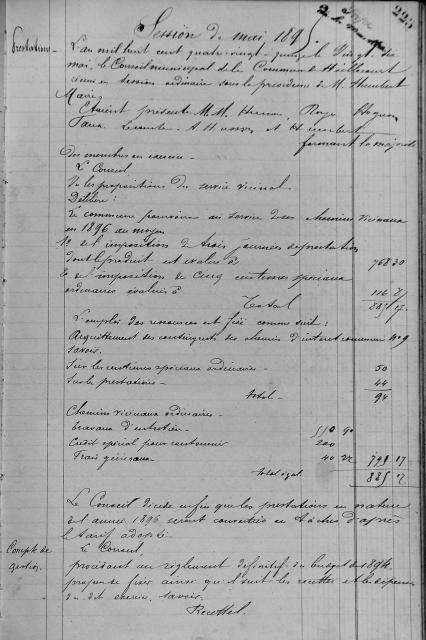 225
Session de mai 1895.
Prestations — L'an mil huit cent quatre-vingt-quinze le vingt
mai, le Conseil municipal de la Commune
réuni en session ordinaire sous la présidence de M. Humbert
Maire
Etaient présents M.M. Roger
Lacombe. A. Husson et Humbert
formant la majorité
des membres en exercice —
Le Conseil
Vu les propositions du service vicinal.
Délibère:
La commune pourvoira au service de ses chemins vicinaux
en 1896 au moyen
1º et impositions de trois journées de prestation
dont le produit est évalué à 768 30
2 et imposition de cinq centimes spéciaux
ordinaires évalués à 116 87
Total 885 17.
L'emploi des ressources est fixé comme suit:
Acquittement des contingents des chemins d'intérêt commun Nº 9
savoir.
Sur les centimes spéciaux ordinaires — 50
Sur les prestations — 44
total — 94
Chemins vicinaux ordinaires —
Travaux d'entretien — 550 90
Crédit spécial pour cantonnier 200
Frais généraux — 40 27 791 17
total égal 885 17
Le Conseil décide enfin que les prestations en nature
de l'année 1896 seront converties en tâches d'après
le tarif adopté.
Compte de Le Conseil,
gestion. procédant au règlement définitif du budget de 1894
propose de fixer ainsi qu'il suit les recettes et les dépenses
du dit exercice, savoir.
Recettes.